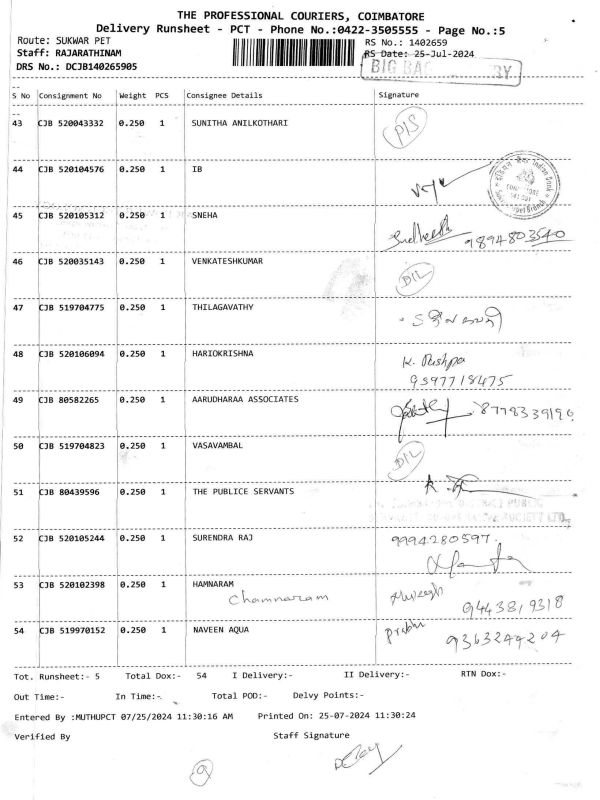 THE PROFESSIONAL COURIERS, COIMBATORE
Delivery Runsheet - PCT - Phone No.:0422-3505555 - Page No.:5
Route: SUKWAR PET
RS No.: 1402659
Staff: RAJARATHINAM
RS Date: 25-Jul-2024
DRS No.: DCJB140265905
BIG BAG
S No Consignment No Weight PCS Consignee Details Signature
43 CJB 520043332 0.250 1 SUNITHA ANILKOTHARI
44 CJB 520104576 0.250 1 IB
Indian Bank
45 CJB 520105312 0.250 1 SNEHA
9894803540
46 CJB 520035143 0.250 1 VENKATESHKUMAR D/L
47 CJB 519704775 0.250 1 THILAGAVATHY
48 CJB 520106094 0.250 1 HARIOKRISHNA K. Pushpa
9597718475
49 CJB 80582265 0.250 1 AARUDHARAA ASSOCIATES 8778339196
50 CJB 519704823 0.250 1 VASAVAMBAL D/L
51 CJB 80439596 0.250 1 THE PUBLICE SERVANTS
PUBLIC
SOCIETY LTD.
52 CJB 520105244 0.250 1 SURENDRA RAJ 9994280597.
53 CJB 520102398 0.250 1 HAMNARAM
Chamnaram
9443819318
54 CJB 519970152 0.250 1 NAVEEN AQUA Prabhu
9363244204
Tot. Runsheet:- 5 Total Dox:- 54 I Delivery:- II Delivery:- RTN Dox:-
Out Time:- In Time:- Total POD:- Delvy Points:-
Entered By :MUTHUPCT 07/25/2024 11:30:16 AM Printed On: 25-07-2024 11:30:24
Verified By Staff Signature
9